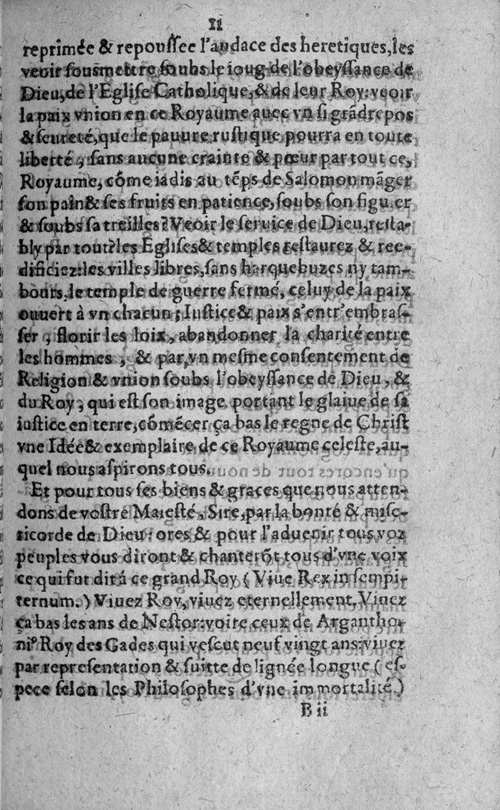 11
reprimée & repoussee l'audace des heretiques, les
veoir sousmettre soubs le ioug de l'obeyssance de
Dieu, de l'Eglise Catholique, & de leur Roy: veoir
la paix vnion en ce Royaume auec vn si grãd repos
& seureté, que le pauure rustique pourra en toute
liberté, sans aucune crainte & pœur par tout ce,
Royaume, cõme iadis au tẽps de Salomon mãger
son pain & ses fruits en patience, soubs son figuier
& soubs sa treilles? Veoir le seruice de Dieu, resta-
bly par tout? les Eglises & temples restaurez & ree-
dificiez: les villes libres, sans harquebuzes ny tam-
bours, le temple de guerre fermé, celuy de la paix
ouuert à vn chacun; Iustice & paix s'entr'embras-
ser, florir les loix, abandonner la charité entre
les hommes, & par vn mesme consentement de
Religion & vnion soubs l'obeyssance de Dieu, &
du Roy, qui est son image portant le glaiue de sa
iustice en terre, cõmécer ça bas le regne de Christ
vne Idée & exemplaire de ce Royaume celeste, au-
quel nous aspirons tous.
Et pour tous ses biens & graces que nous atten-
dons de vostre Maiesté, Sire, par la bonté & mise-
ricorde de Dieu: ores & pour l'aduenir tous voz
peuples vous diront & chanterõt tous d'vne voix
ce qui fut dit à ce grand Roy (Viue Rex in sempi-
ternum.) Viuez Roy, viuez eternellement, Viuez
ça bas les ans de Nestor: voire ceux de Argantho-
niº Roy des Gades qui vescut neuf vingt ans: viuez
par representation & suitte de lignée longue (es-
pece selon les Philosophes d'vne immortalité.)
B ii